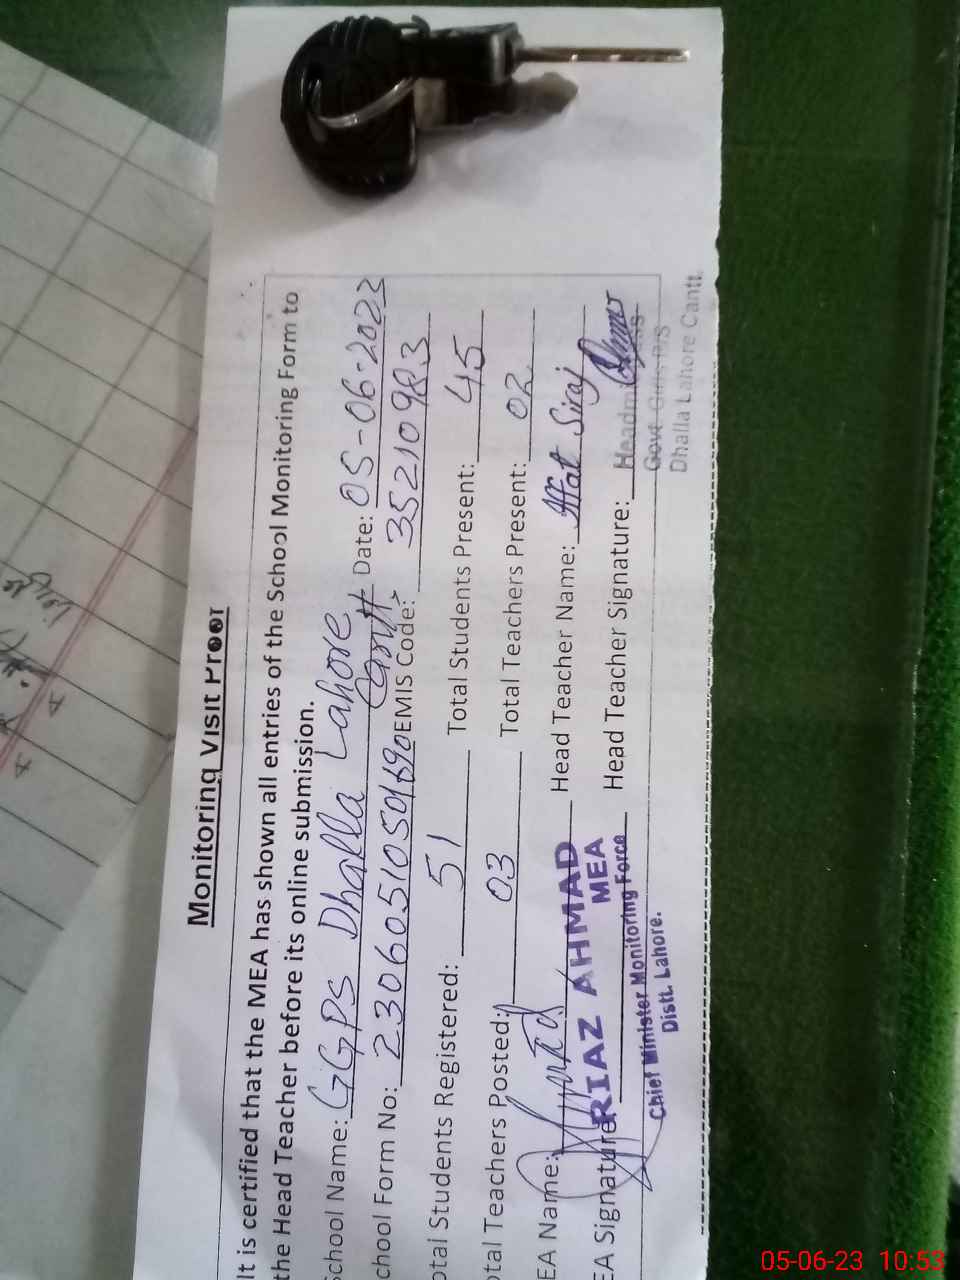 Monitoring Visit Proof
It is certified that the MEA has shown all entries of the School Monitoring Form to
the Head Teacher before its online submission.
School Name: GGPS Dhalla Lahore Cantt Date: 05-06-2023
chool Form No: EMIS Code: 35210983
otal Students Registered: 51 Total Students Present: 45
otal Teachers Posted: 03 Total Teachers Present: 02
EA Name: Head Teacher Name: Affat Siraj
RIAZ AHMAD
MEA
EA Signature Head Teacher Signature:
Chief Minister Monitoring Force
Distt. Lahore.
Headmistress
Govt Girls P/S
Dhalla Lahore Cantt.
05-06-23 10:53